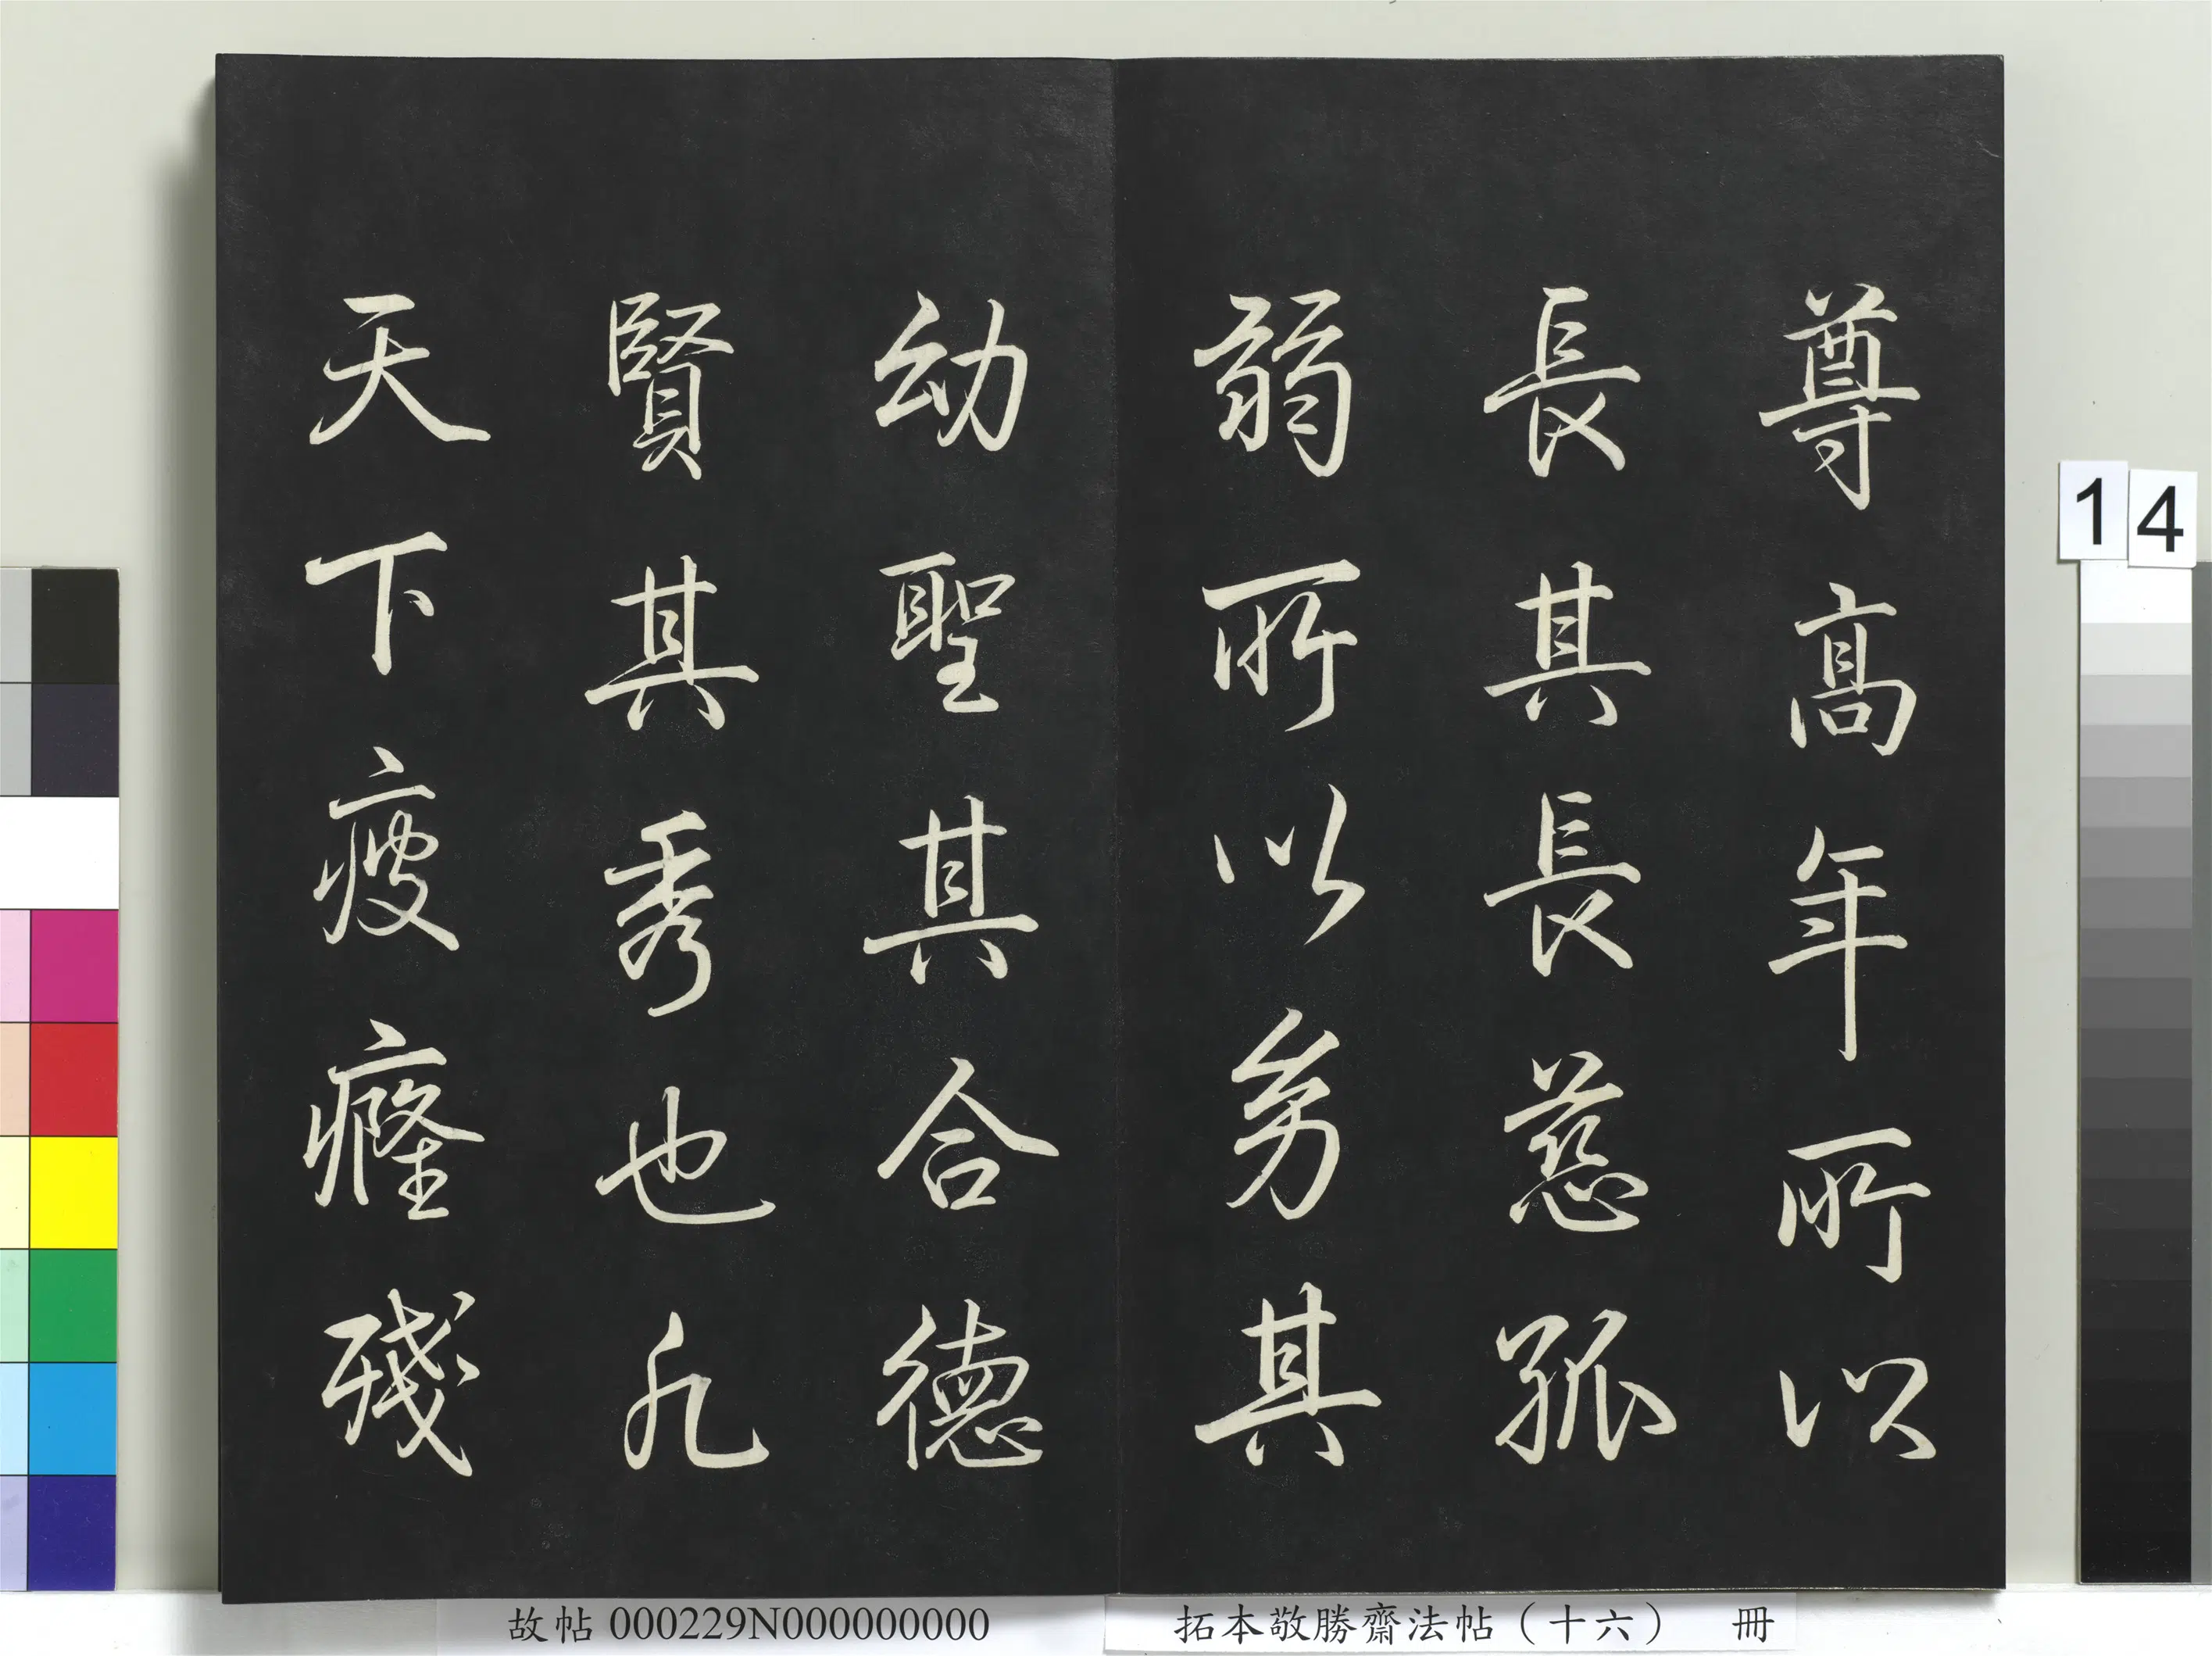 尊高年所以
長其長慈孤
弱所以幼其
幼聖其合德
賢其秀也凡
天下疲癃殘
14
拓本敬勝齋法帖（十六） 冊
故帖 000229N000000000